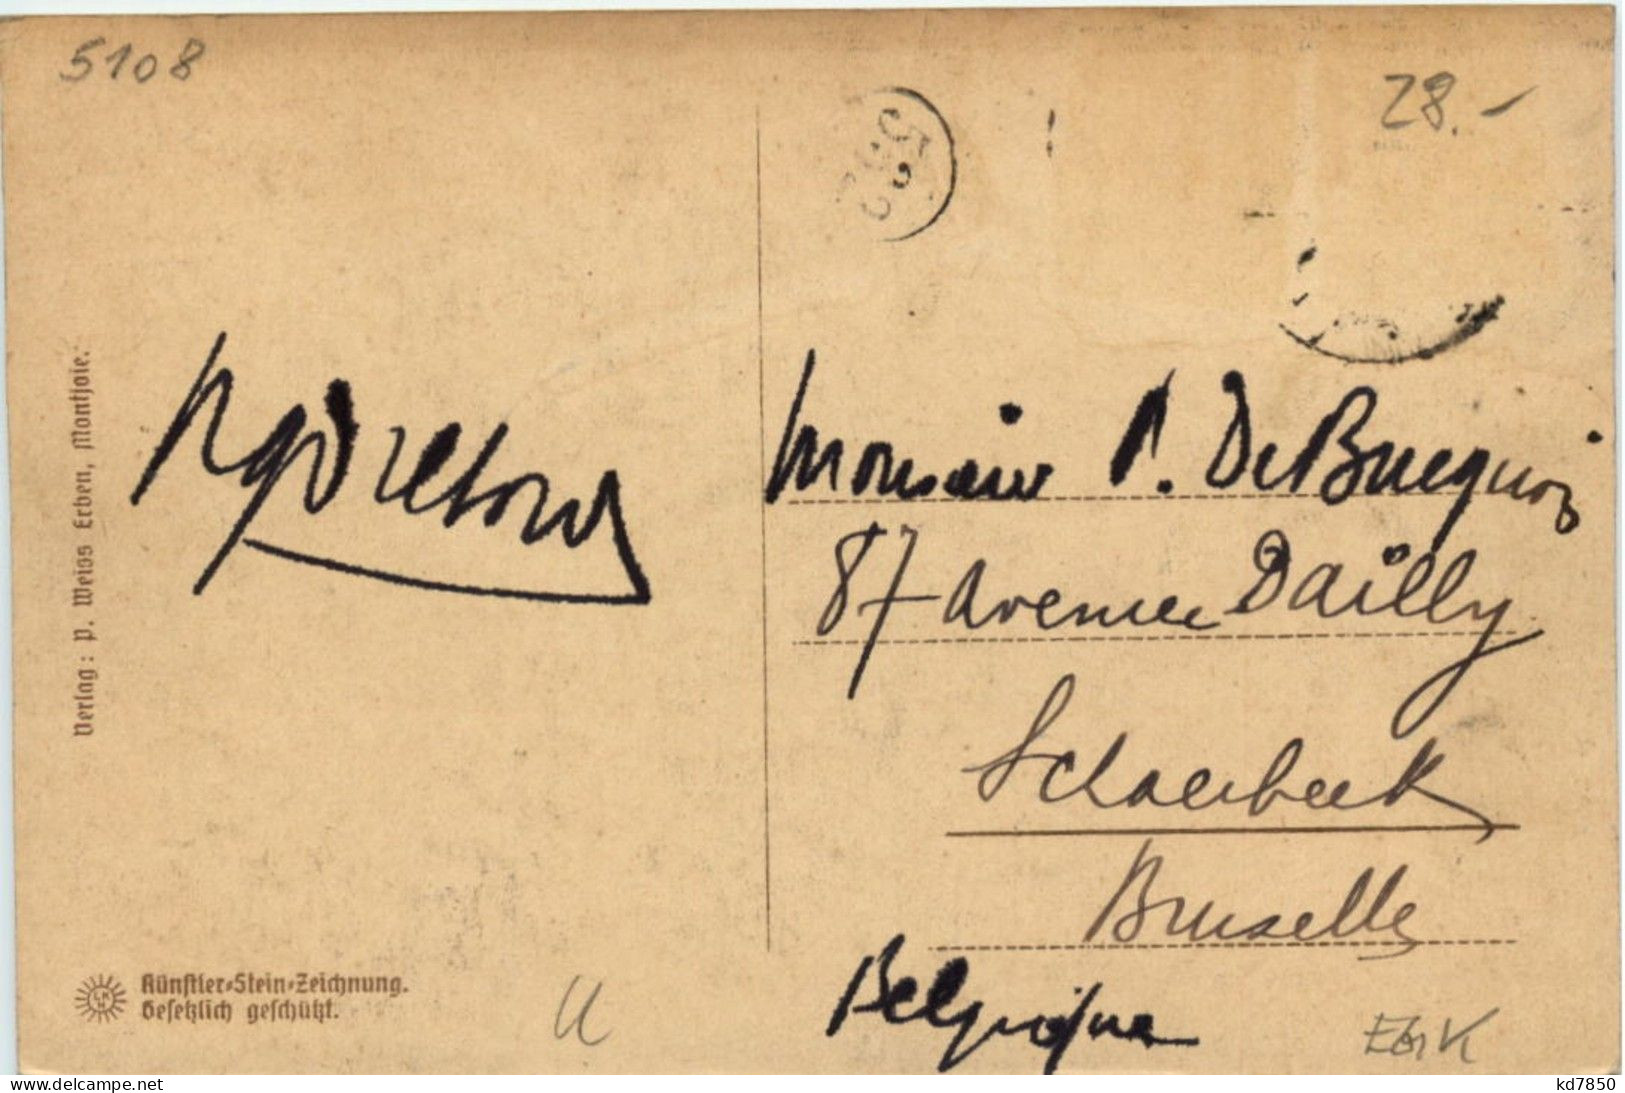 5108
28.-
Verlag: P. Weiss Erben, Montjoie.
Monsieur P. De Bruequoi
87 Avenue Dailly
Schaerbeek
Bruxelles
Belgique
Künstler-Stein-Zeichnung.
Gesetzlich geschützt.
kd7850